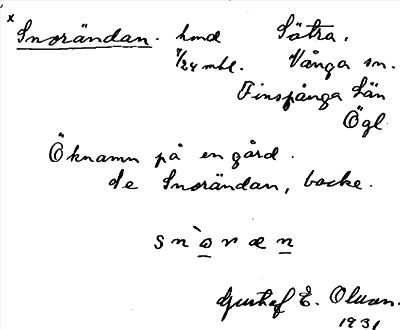 x
Snorändan. hmd Sätra.
7/24 mtl. Vånga sn.
Finspånga län
Ögl.
Öknamn på en gård.
de Snorändan, backe.
snòræn
Gustaf E. Olsson.
1931